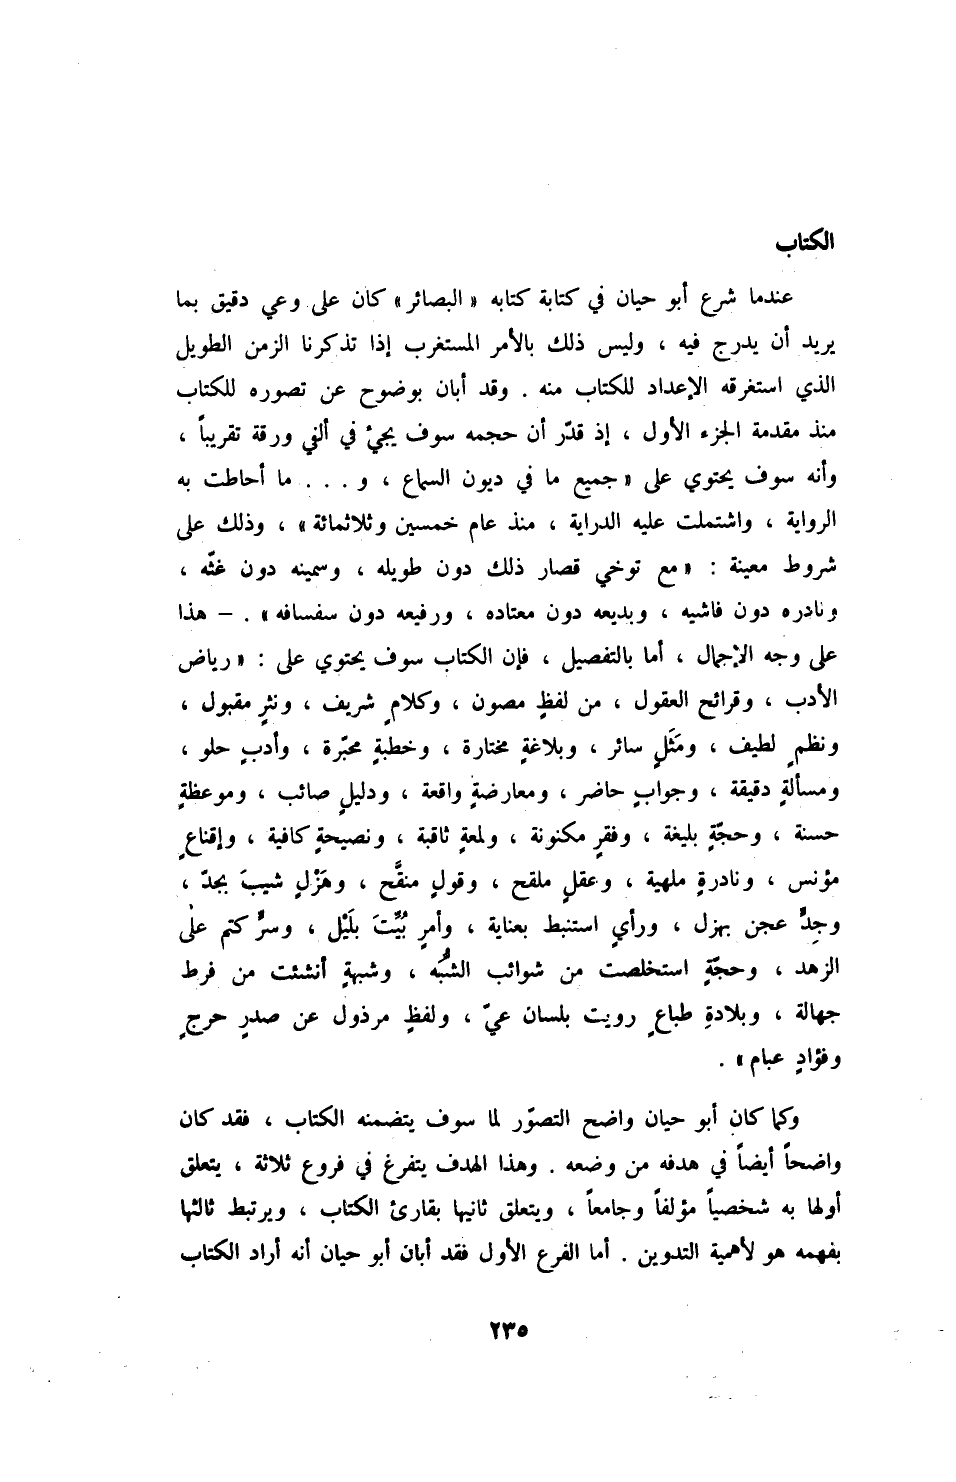 الكتاب
عندما شرع أبو حيان في كتابة كتابه « البصائر » كان على وعي دقيق بما
يريد أن يدرج فيه ، وليس ذلك بالأمر المستغرب إذا تذكرنا الزمن الطويل
الذي استغرقه الإعداد للكتاب منه . وقد أبان بوضوح عن تصوره للكتاب
منذ مقدمة الجزء الأول ، إذ قدّر أن حجمه سوف يجيْ في ألفي ورقة تقريباً ،
وأنه سوف يحتوي على « جميع ما في ديون السماع ، و . . . ما أحاطت به
الرواية ، واشتملت عليه الدراية ، منذ عام خمسين وثلاثمائة » ، وذلك على
شروط معينة : « مع توخي قصار ذلك دون طويله ، وسمينه دون غثّه ،
ونادره دون فاشيه ، وبديعه دون معتاده ، ورفيعه دون سفسافه » . – هذا
على وجه الإجمال ، أما بالتفصيل ، فإن الكتاب سوف يحتوي على : « رياض
الأدب ، وقرائح العقول ، من لفظٍ مصون ، وكلامٍ شريف ، ونثرٍ مقبول ،
ونظمٍ لطيف ، ومَثَلٍ سائر ، وبلاغةٍ مختارة ، وخطبةٍ محبّرة ، وأدبٍ حلو ،
ومسألةٍ دقيقة ، وجوابٍ حاضر ، ومعارضةٍ واقعة ، ودليلٍ صائب ، وموعظةٍ
حسنة ، وحجّةٍ بليغة ، وفقرٍ مكنونة ، ولمعةٍ ثاقبة ، ونصيحةٍ كافية ، وإقناعٍ
مؤنس ، ونادرةٍ ملهية ، وعقلٍ ملقح ، وقولٍ منقَّح ، وهَزْلٍ شيبَ بجدّ ،
وجِدٍّ عجن بهزل ، ورأيٍ استنبط بعناية ، وأمرٍ بُيِّتَ بلَيْل ، وسرٍّ كتم على
الزهد ، وحجّةٍ استخلصت من شوائب الشُّبَه ، وشبهةٍ أنشئت من فرط
جهالة ، وبلادةِ طباعٍ رويت بلسان عيّ ، ولفظٍ مرذول عن صدرٍ حرجٍ
وفؤادٍ عبام » .
وكما كان أبو حيان واضح التصوّر لما سوف يتضمنه الكتاب ، فقد كان
واضحاً أيضاً في هدفه من وضعه . وهذا الهدف يتفرغ في فروع ثلاثة ، يتعلق
أولها به شخصياً مؤلفاً وجامعاً ، ويتعلق ثانيها بقارئ الكتاب ، ويرتبط ثالثها
بفهمه هو لأهمية التدوين . أما الفرع الأول فقد أبان أبو حيان أنه أراد الكتاب
٢٣٥